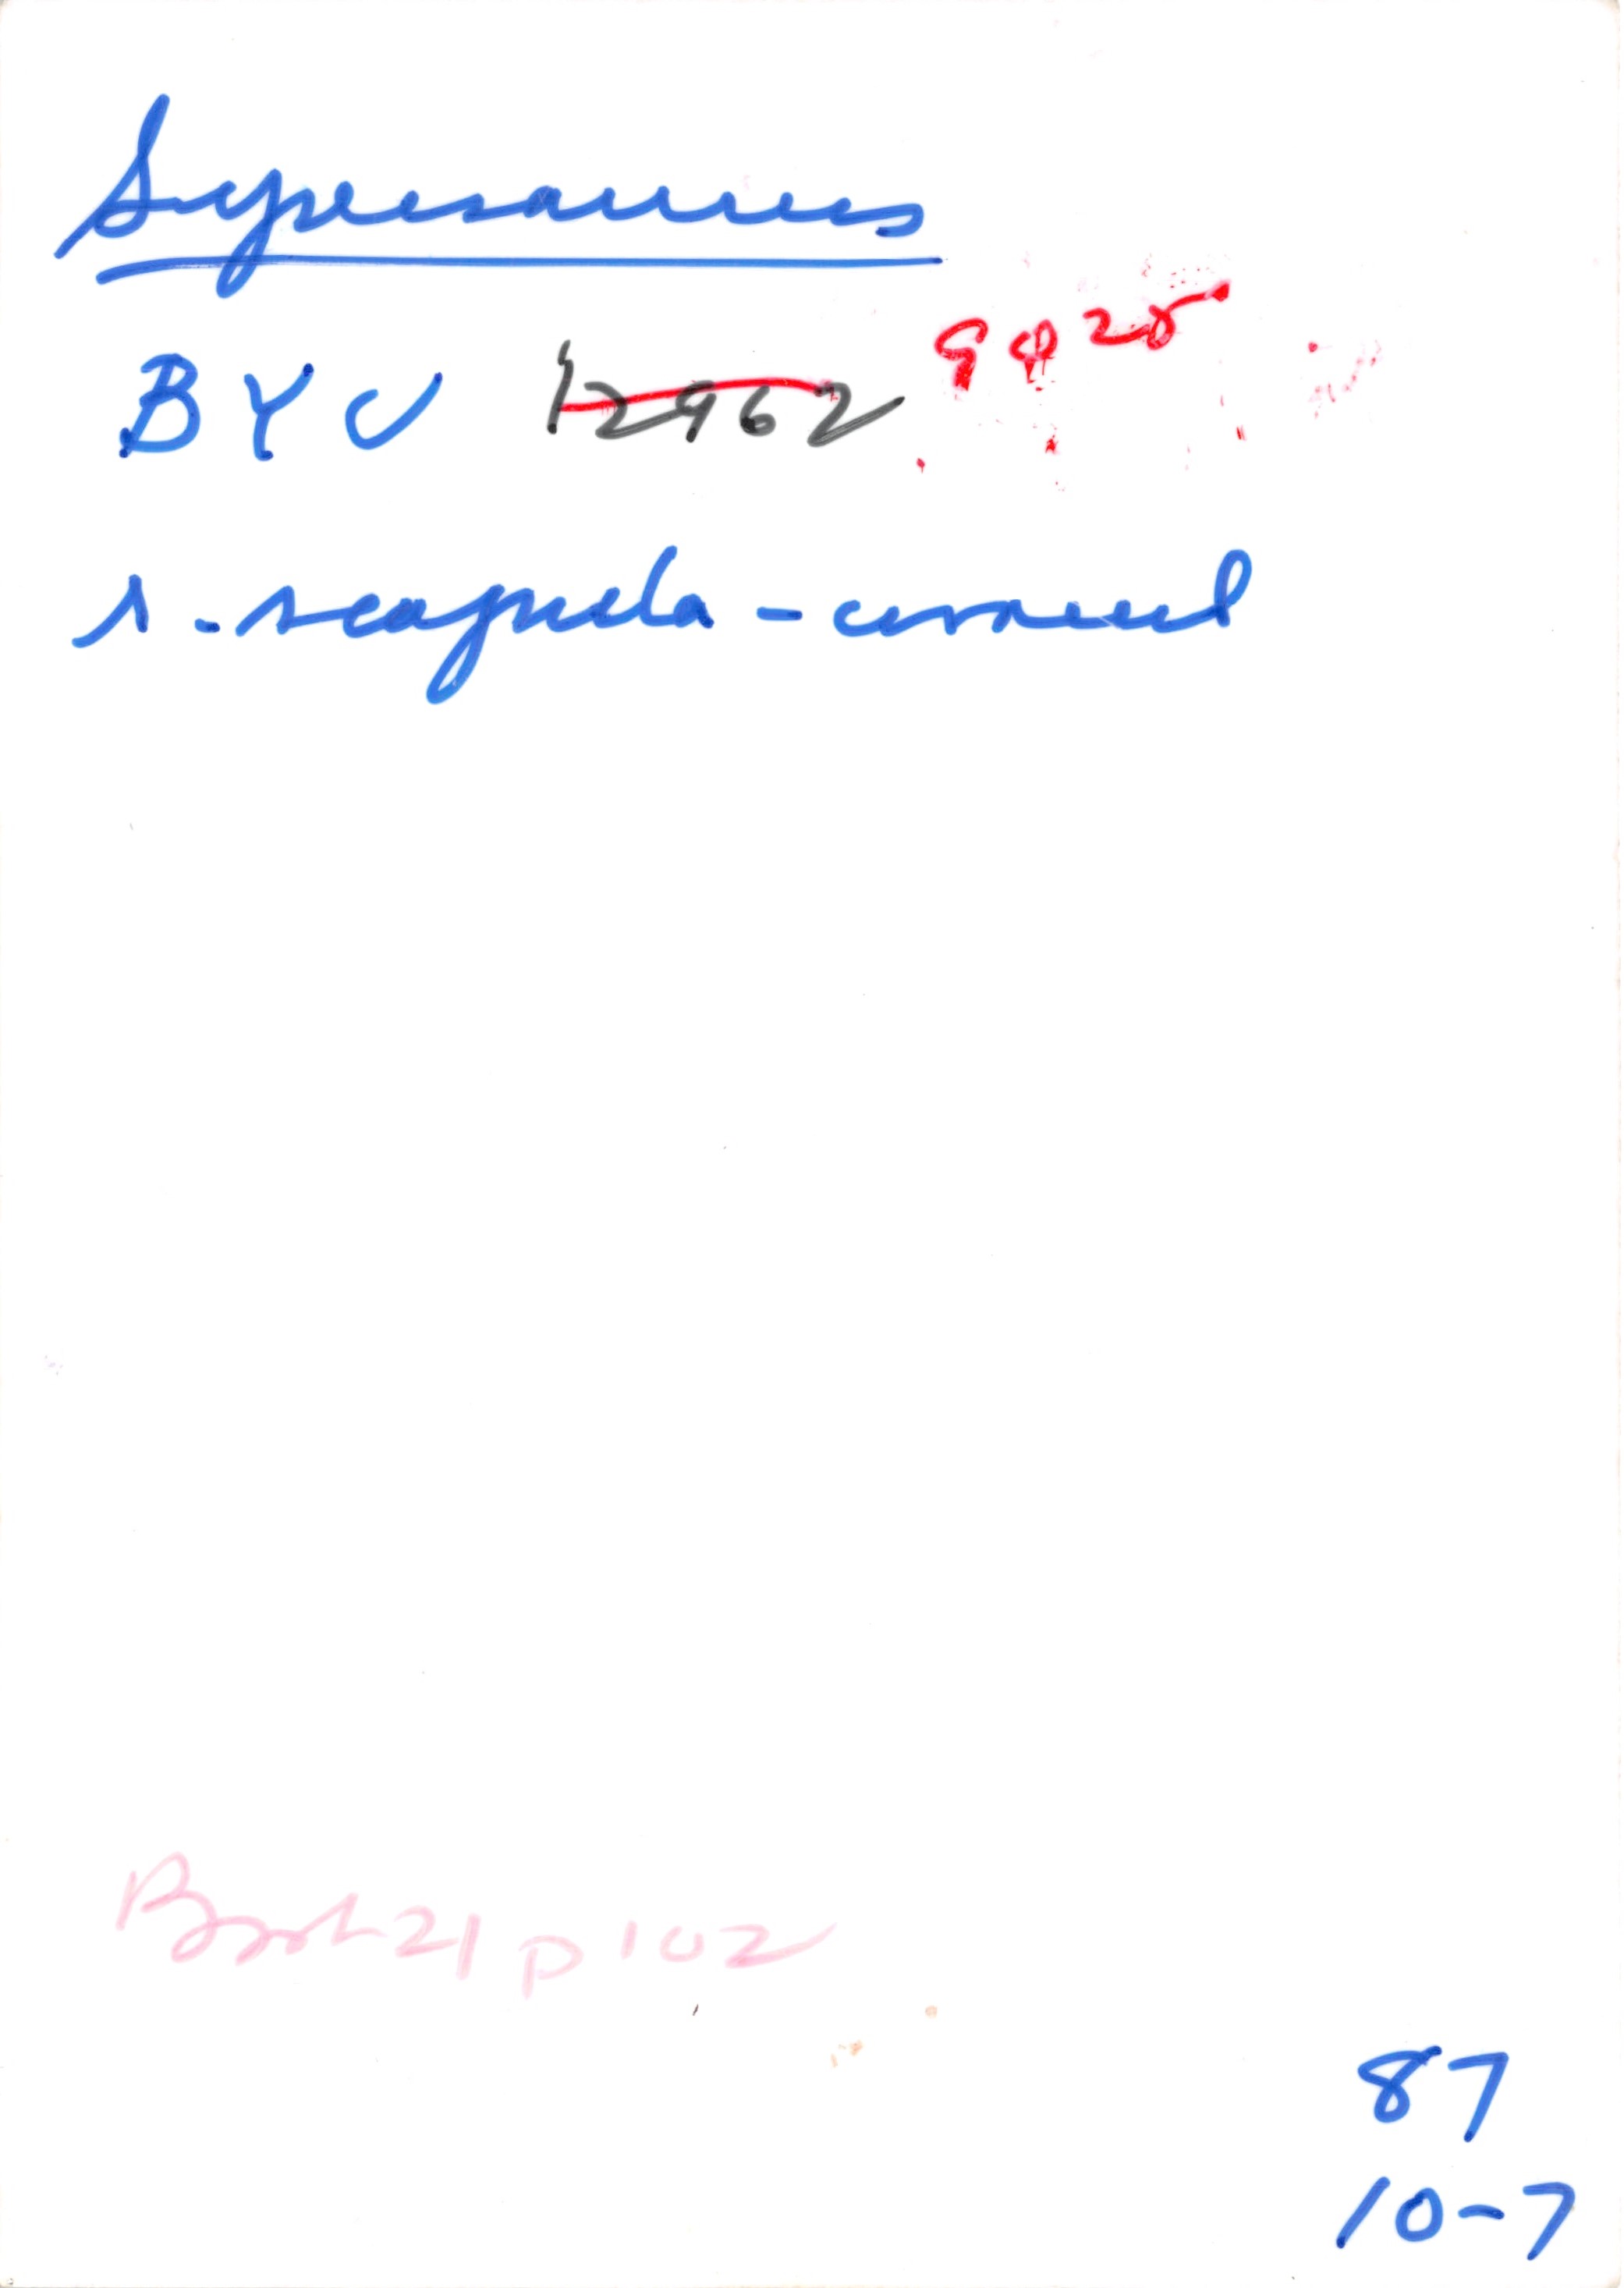 Supersaurus
BYU 12962 9025
r-scapula-coracoid
Book 21 p 102
87
10-7